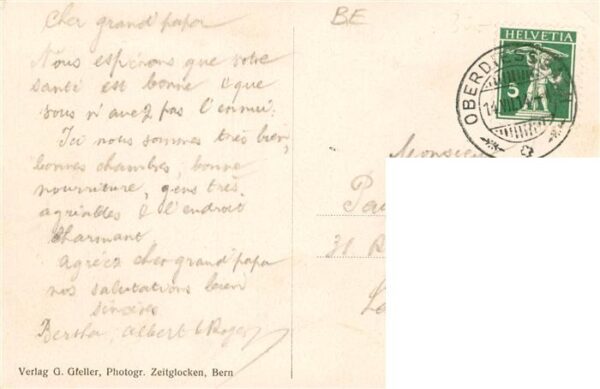 Cher grand'papa
Nous espérons que votre
santé est bonne & que
vous n'avez pas l'ennui.
Ici nous sommes très bien,
bonnes chambres, bonne
nourriture, gens très
agréables & l'endroit
charmant
agréez cher grand'papa
nos salutations bien
sincères
Bertha, Albert & Roger
Verlag G. Gfeller, Photogr. Zeitglocken, Bern
BE
HELVETIA
5
OBERDIESSB
Monsieur
31